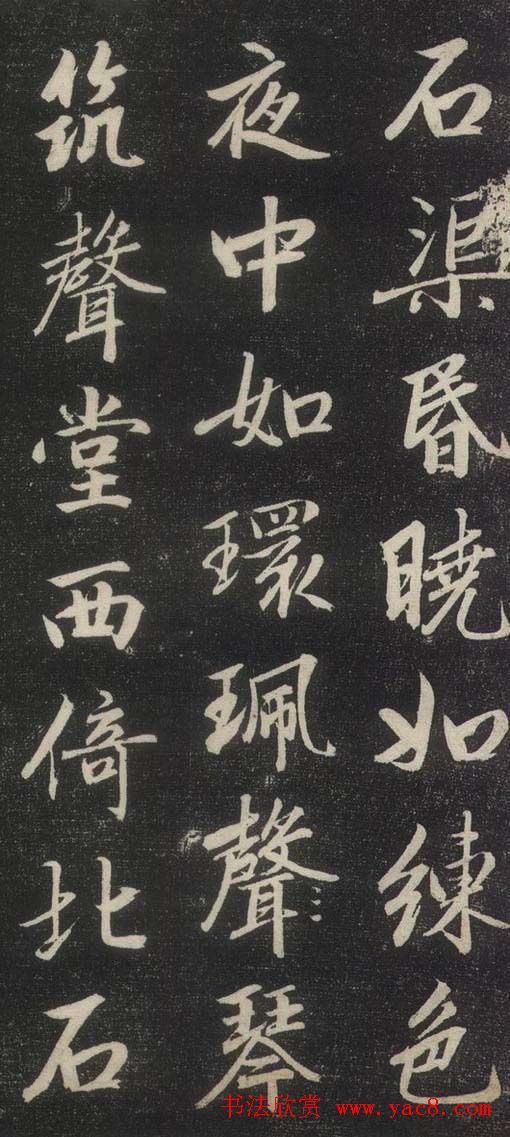 石渠昬曉如練色
夜中如環珮聲琴
筑聲堂西倚北石
书法欣赏 www.yac8.com